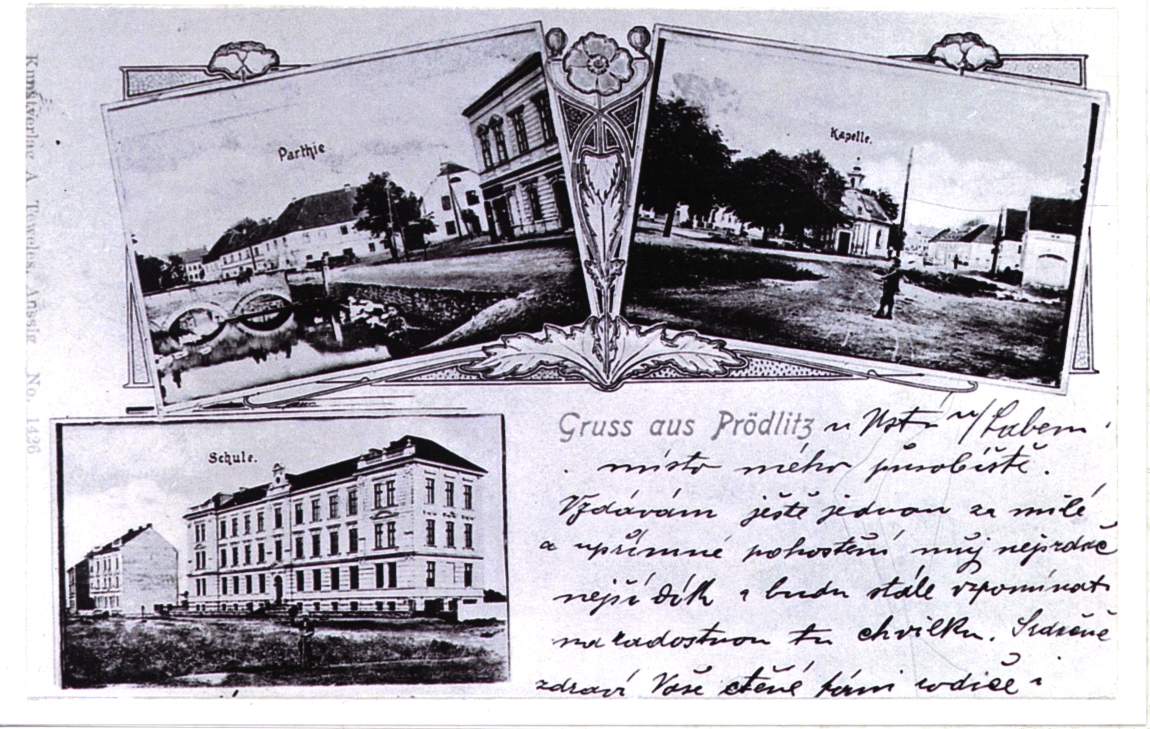 Kunstverlag A. Teweles, Aussig No. 1426
Parthie
Kapelle.
Schule.
Gruss aus Prödlitz u Ústí n/Labem.
místo mého působiště.
Vzdávám ještě jednou za milé
a upřímné pohostění můj nejsrdeč
nejší dík a budu stále vzpomínat
na radostnou tu chvilku. Srdečně
zdraví Vaše ctěné rodiče i